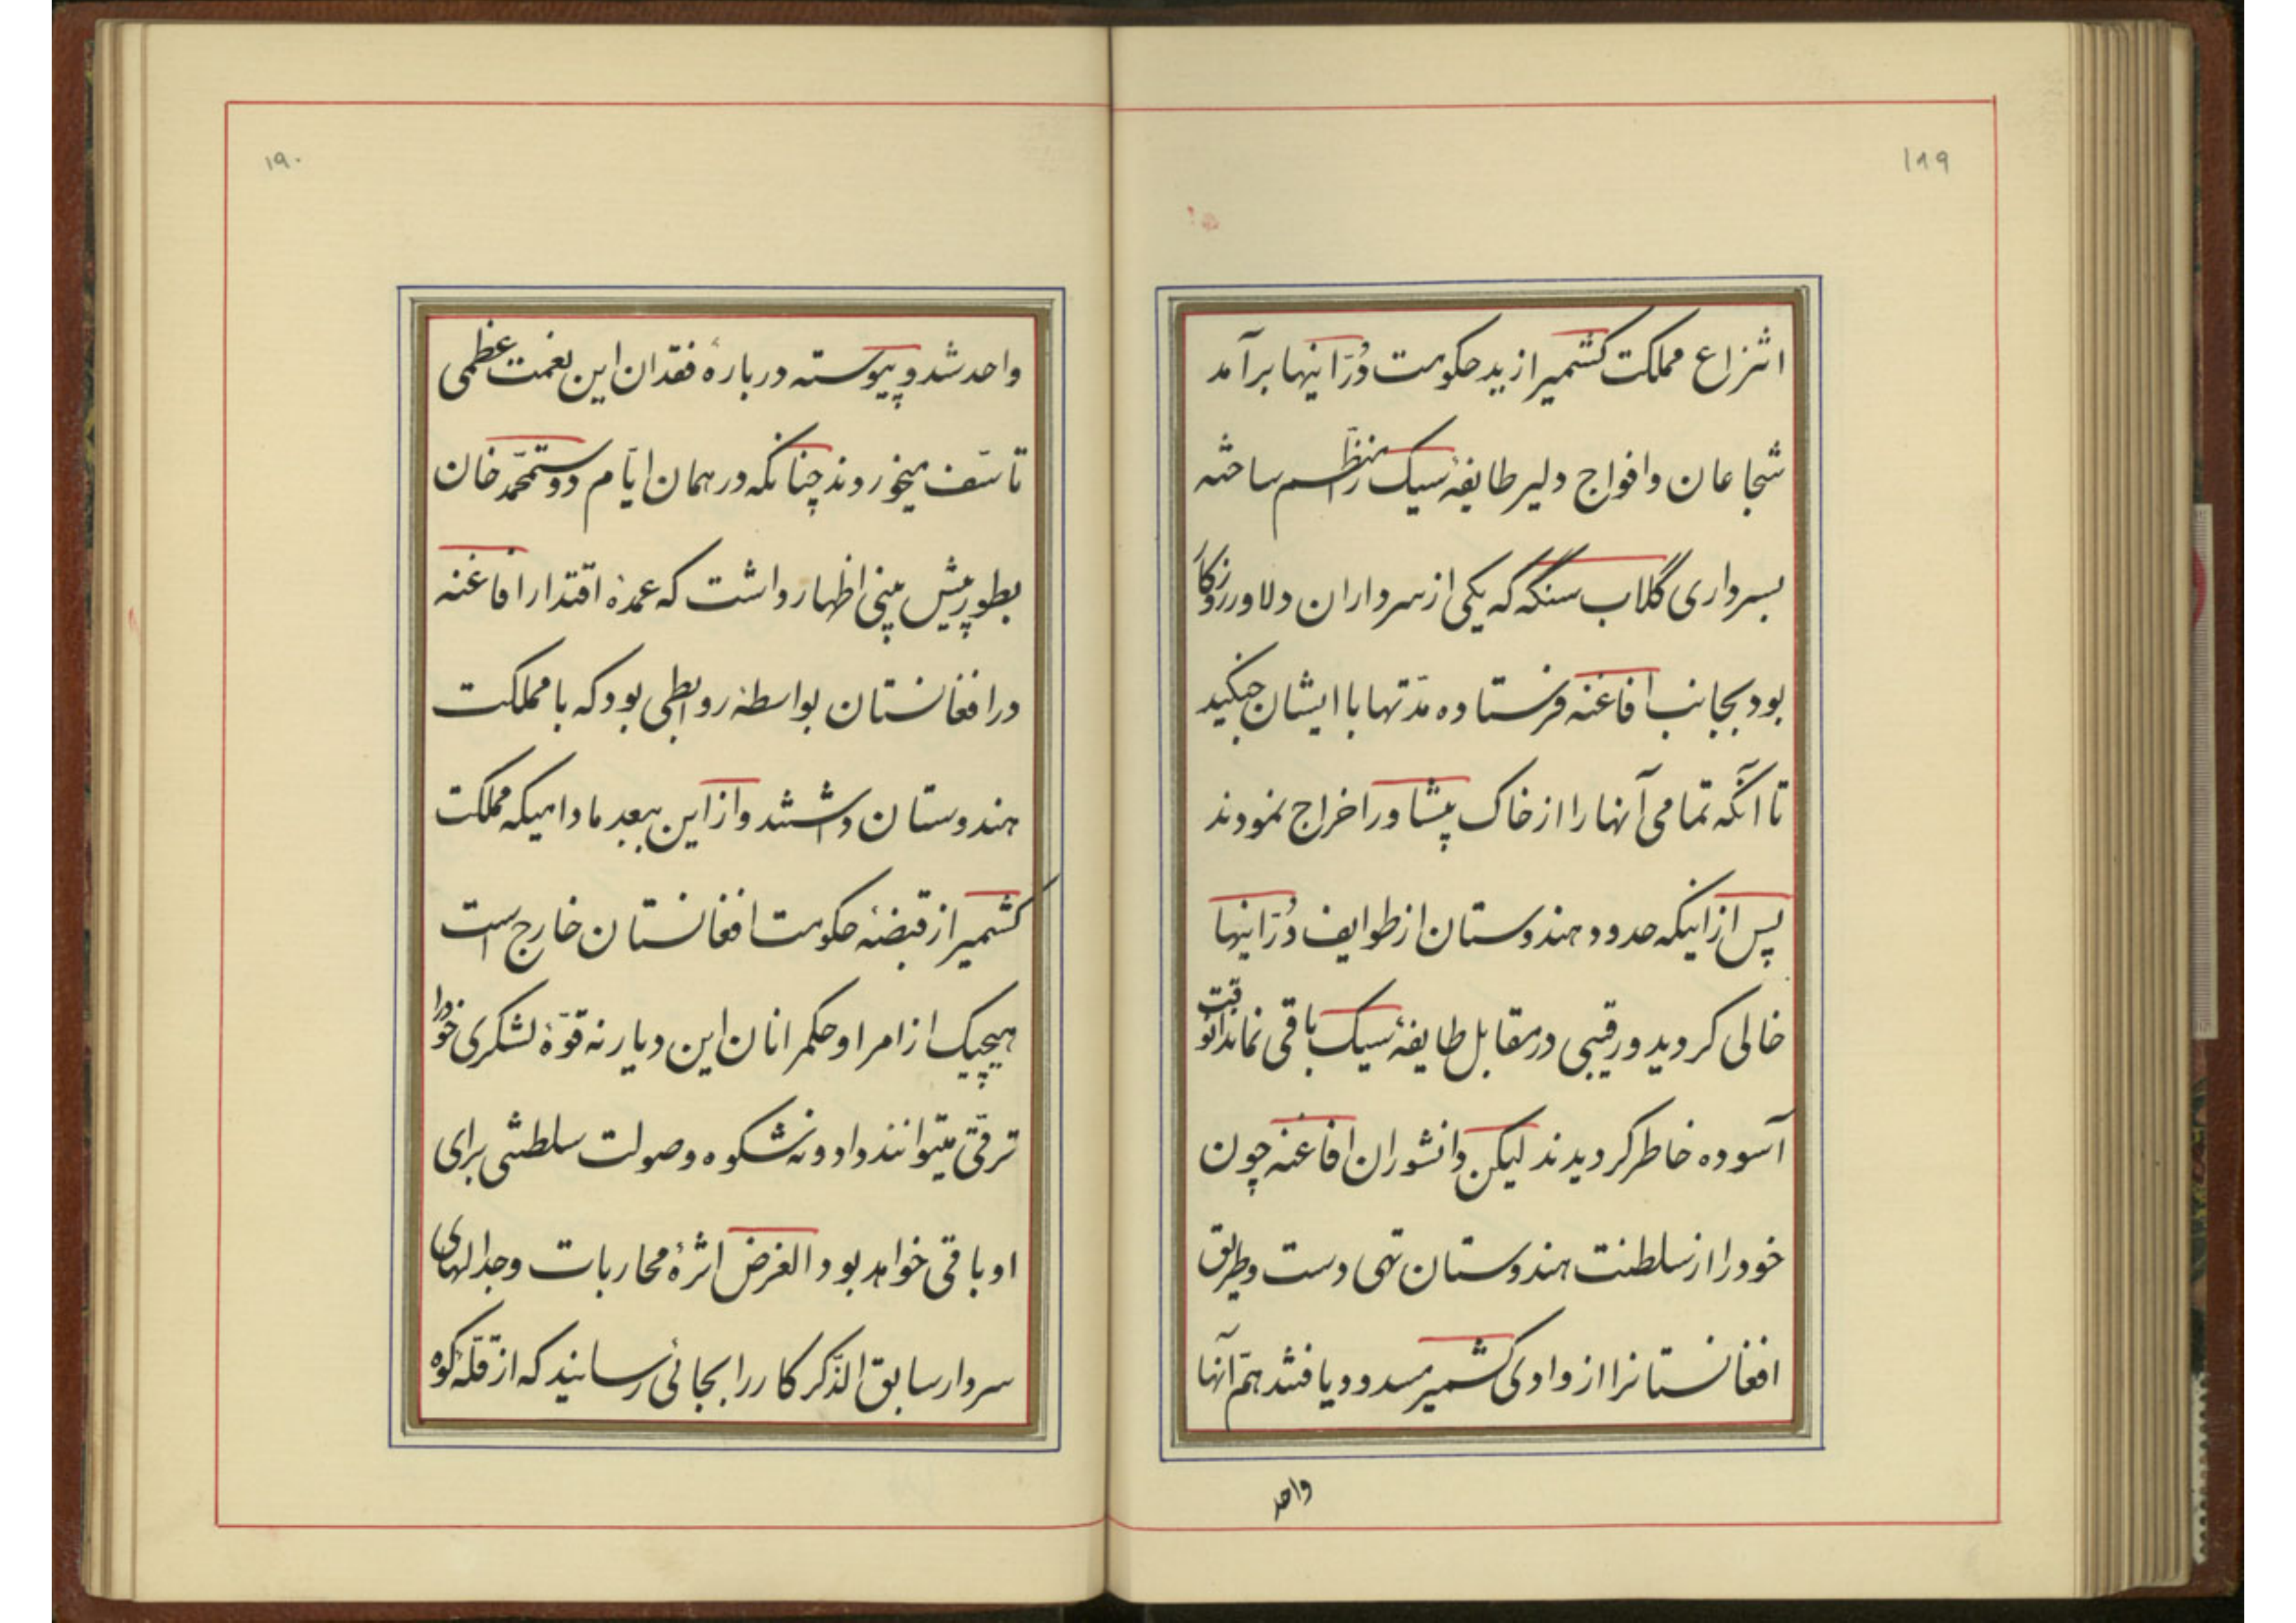 ۱۸۹
انتزاع مملکت کشمیر از ید حکومت دُرّانیها برآمد
شجاعان و افواج دلیر طایفهٔ سیک را منظّم ساخته
بسرداری گلاب سنگه که یکی از سرداران دلاور روزگار
بود بجانب افاغنه فرستاده مدّتها با ایشان جنگید
تا آنکه تمامی آنها را از خاک پیشاور اخراج نمودند
پس از اینکه حدود هندوستان از طوایف دُرّانیها
خالی گردید و رقیبی در مقابل طایفهٔ سیک باقی نماند آنوقت
آسوده خاطر گردیدند لیکن دانشوران افاغنه چون
خود را از سلطنت هندوستان تهی دست و طریق
افغانستانرا از وادی کشمیر مسدود یافتند همّ آنها
واحد
۱۹۰
واحد شد و پیوسته در بارهٔ فقدان این نعمت عظمی
تاسّف میخوردند چنانکه در همان ایّام دوستمحمّد خان
بطور پیش بینی اظهار داشت که عمدهٔ اقتدار افاغنه
در افغانستان بواسطهٔ روابطی بود که با مملکت
هندوستان داشتند و از این ببعد مادامیکه مملکت
کشمیر از قبضهٔ حکومت افغانستان خارج است
هیچیک از امرا و حکمرانان این دیار نه قوّهٔ لشکری خود را
ترقّی میتوانند داد و نه شکوه و صولت سلطنتی برای
او باقی خواهد بود الغرض اثرهٔ محاربات و جدالهای
سردار سابق الذّکر کار را بجائی رسانید که از قلّهٔ کوه